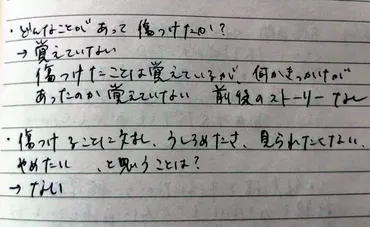 ・どんなことがあって傷つけたか?
→覚えていない
傷つけたことは覚えているが、何かきっかけが
あったのか覚えていない 前後のストーリーなし
・傷つけることに対し、うしろめたさ、見られたくない、
やめたい、と思うことは?
→ない